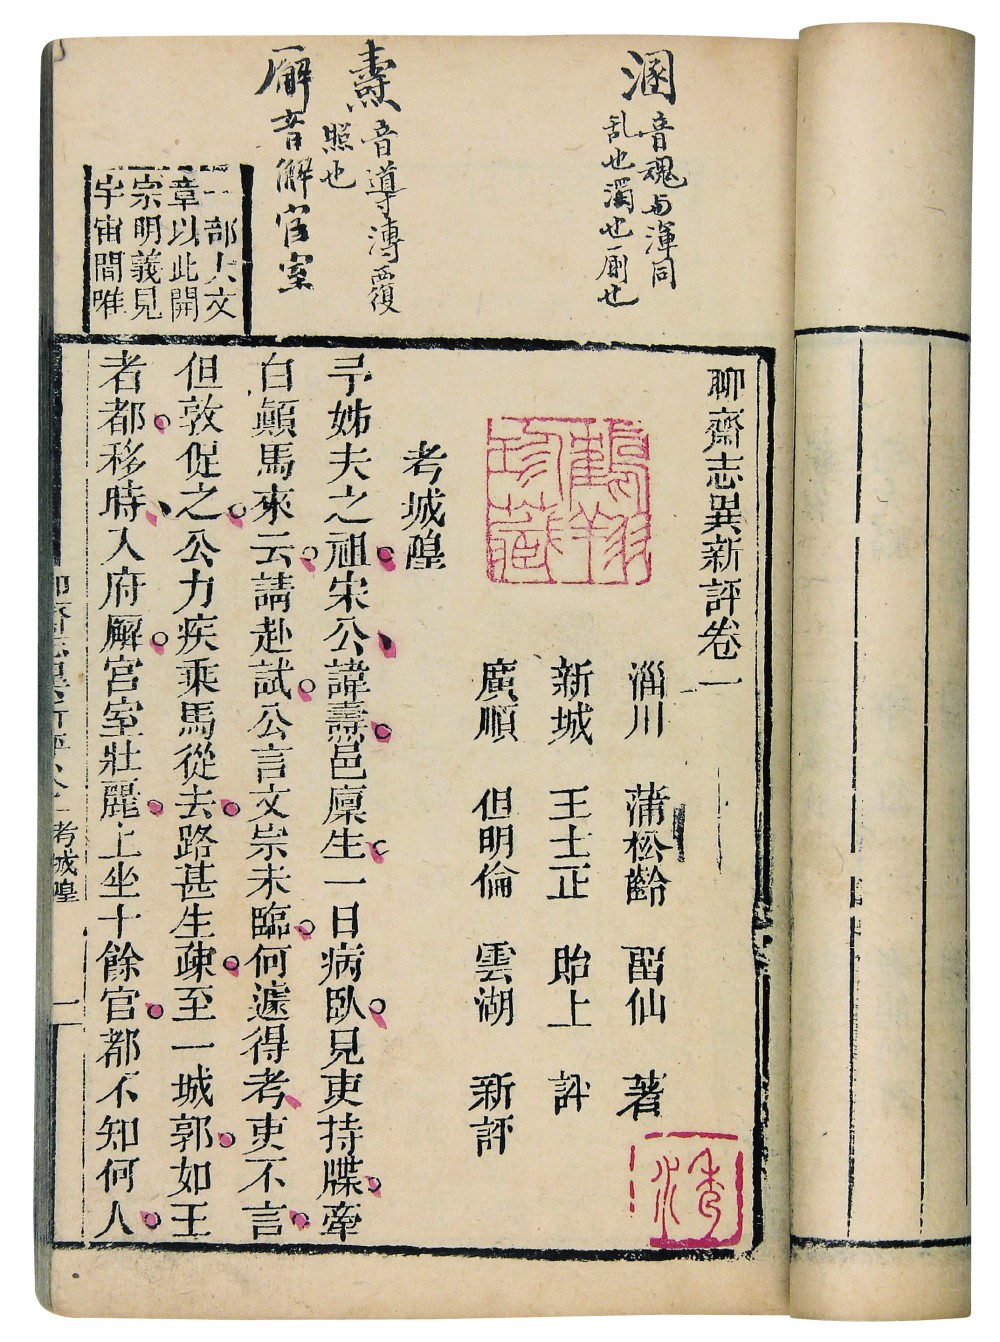 溷
音魂与渾同
乱也濁也厠也
燾
音導溥覆
照也
廨音解官室
一部大文
章以此開
宗明義見
宇宙間唯
聊齋志異新評卷一
淄川 蒲松齡 畱仙 著
新城 王士正 貽上 評
廣順 但明倫 雲湖 新評
鶴翔
珍藏
考城隍
予姊夫之祖宋公諱燾邑廩生一日病臥見吏持牒牽
白顛馬來云請赴試公言文宗未臨何遽得考吏不言
但敦促之公力疾乘馬從去路甚生疎至一城郭如王
者都移時入府廨宮室壯麗上坐十餘官都不知何人
聊齋志異新評卷一 考城隍 一